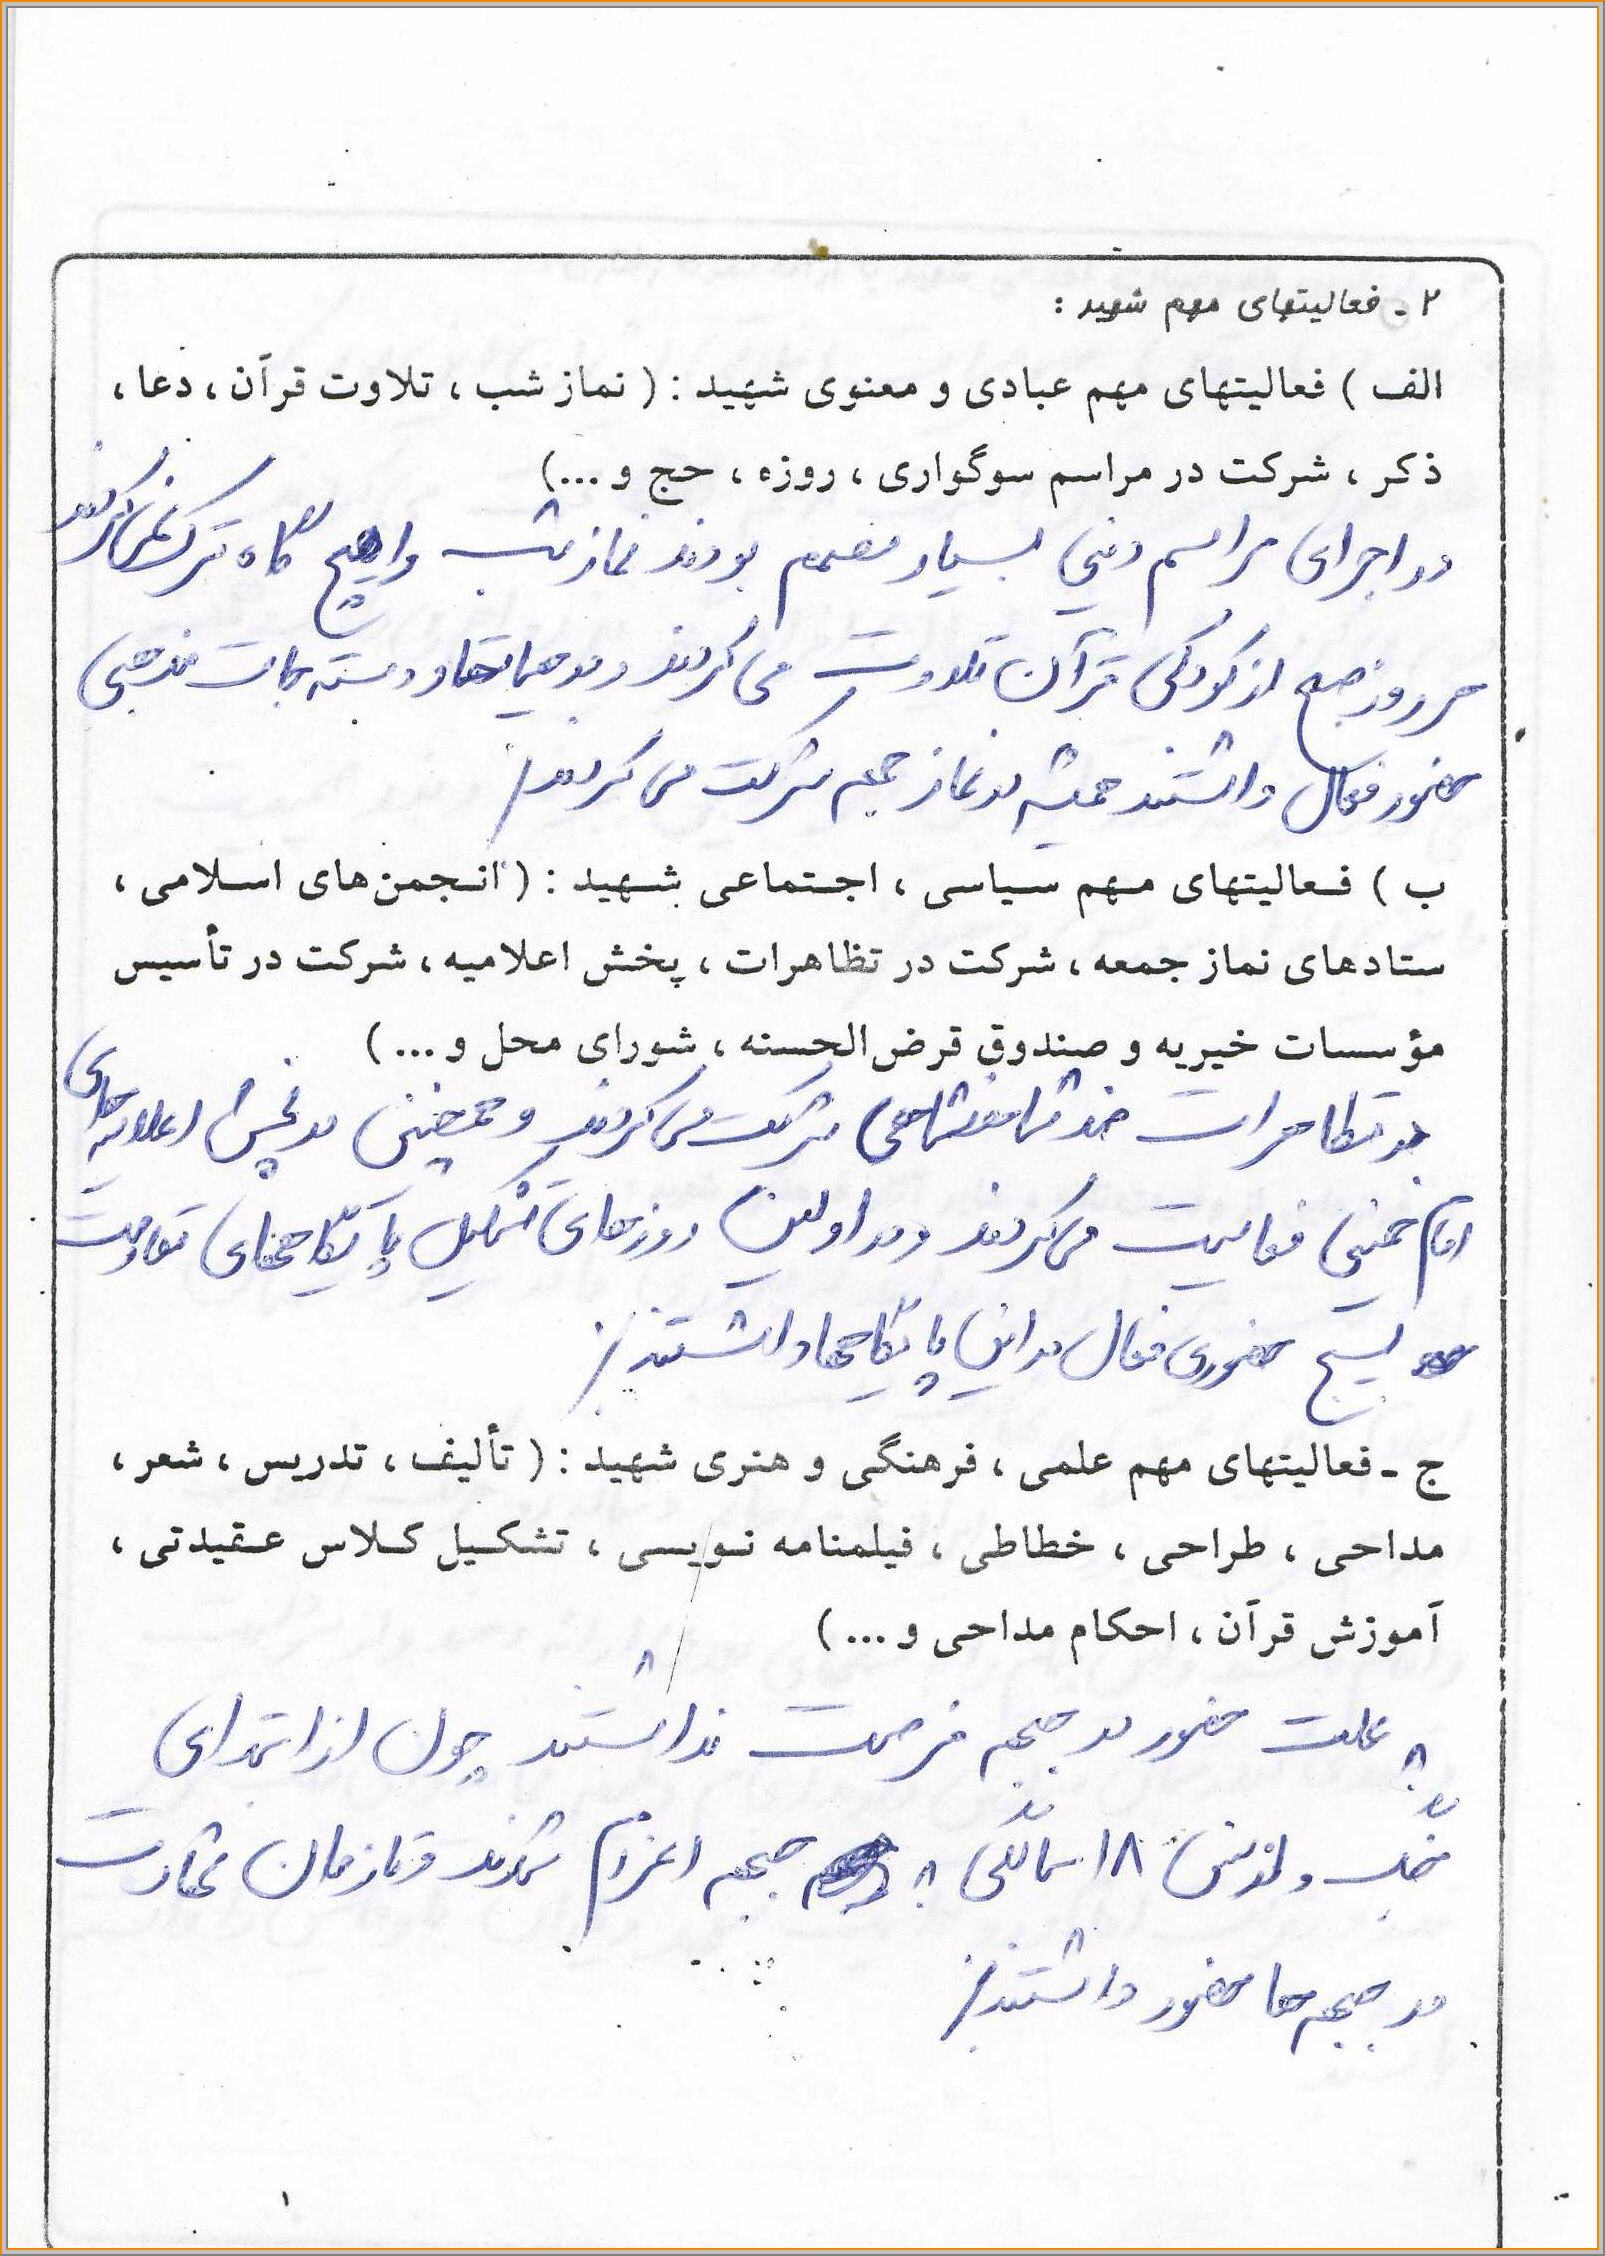 ۲ ـ فعالیتهای مهم شهید :
الف ) فعالیتهای مهم عبادی و معنوی شهید : ( نماز شب ، تلاوت قرآن ، دعا ،
ذکر ، شرکت در مراسم سوگواری ، روزه ، حج و ...)
در اجرای مراسم دینی بسیار مصمم بودند نماز شب را هیچ گاه ترک نمی‌کردند
هر روز صبح از کودکی قرآن تلاوت می کردند و در هیأتها و دسته جات مذهبی
حضور فعال داشتند همیشه در نماز جمعه شرکت می کردند
ب ) فعالیتهای مهم سیاسی ، اجتماعی شهید : ( انجمن‌های اسلامی ،
ستادهای نماز جمعه ، شرکت در تظاهرات ، پخش اعلامیه ، شرکت در تأسیس
مؤسسات خیریه و صندوق قرض‌الحسنه ، شورای محل و ... )
در تظاهرات ضد شاهنشاهی شرکت می کردند و همچنین در پخش اعلامیه های
امام خمینی فعالیت می کردند و در اولین روزهای تشکیل پایگاههای مقاومت
بسیج حضوری فعال در این پایگاهها داشتند
ج ـ فعالیتهای مهم علمی ، فرهنگی و هنری شهید : ( تألیف ، تدریس ، شعر ،
مداحی ، طراحی ، خطاطی ، فیلمنامه نویسی ، تشکیل کلاس عقیدتی ،
آموزش قرآن ، احکام مداحی و ... )
به علت حضور در جبهه فرصت نداشتند چون از ابتدای
جنگ و از سن ۱۸ سالگی به جبهه اعزام شدند و تا زمان شهادت
در جبهه ها حضور داشتند
۱